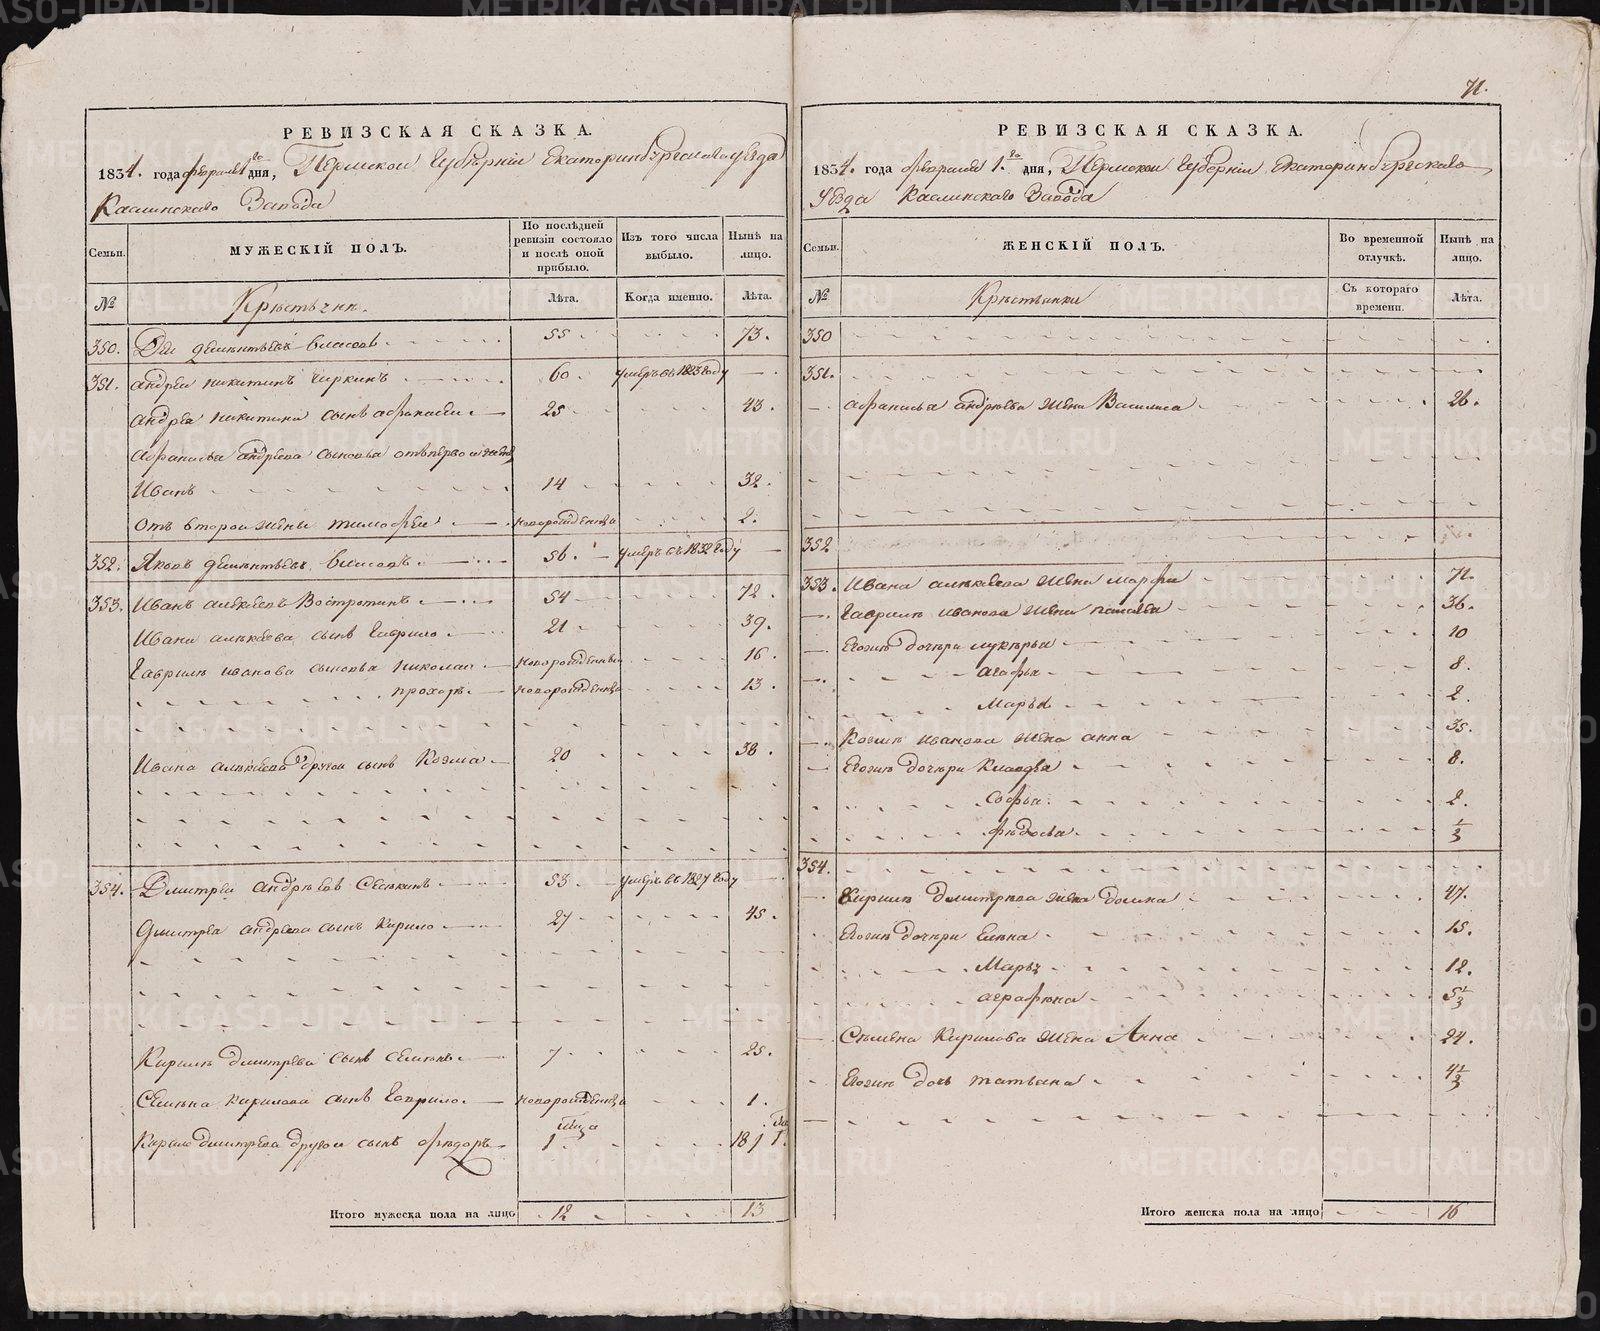 71.
РЕВИЗСКАЯ СКАЗКА.
1834. года февраля 1го дня, Пермской Губернии Екатеринбургскаго уезда
Каслинскаго Завода
Семьи. МУЖЕСКІЙ ПОЛЪ. По послѣдней ревизіи состояло и послѣ оной прибыло. Изъ того числа выбыло. Нынѣ на лицо.
№ Крѣстьяне. Лѣта. Когда именно. Лѣта.
350. дементьевъ власовъ 55 73.
351. андреи никитинъ чиркинъ 60 умеръ въ 1823 году
андрея никитина сынъ афанасеи 25 43.
афанасья андреева сыновья отъ первои жены
Иванъ 14 32.
отъ второи жены тимофеи новорожденъ 2.
352. Яковъ дементьевъ власовъ 56. умеръ въ 1832 году
353. Иванъ алексеевъ Востротинъ 54 72.
Ивана алексеева сынъ гаврило 21 39.
гаврила иванова сыновья николаи новорожденныи 16
прохоръ новорожденъ 13
Ивана алексеева другои сынъ Козма 20 38.
354. Дмитреи андреевъ Селкинъ 53 умеръ въ 1827 году
дмитрея андреева сынъ кирило 27 45.
Кирила дмитрева сынъ семенъ 7 25.
семена кирилова сынъ гаврило новорожденъ 1.
Кирила дмитрева другои сынъ федоръ 1 18/1
Итого мужеска пола на лицо 12 13
РЕВИЗСКАЯ СКАЗКА.
1834. года февраля 1.го дня, Пермской Губернии Екатеринбургскаго
уезда Каслинскаго Завода
Семьи. ЖЕНСКІЙ ПОЛЪ. Во временной отлучкѣ. Нынѣ на лицо.
№ Крѣстьянки Съ котораго времени. Лѣта.
350
351.
афанасья андреева жена Василиса 26.
352
353. Ивана алексеева жена марфа 71.
гаврила иванова жена 36.
Егоже дочери лукерья 10
агафья 8.
Марья 2.
Козми иванова жена анна 35.
Егоже дочери Клавдея 8.
софья 2.
федосья 1/3
354.
Кирила дмитрева жена домна 47.
Егоже дочери Елена 15.
Марья 12.
аграфена 5 1/3
Семена Кирилова жена Анна 24.
Егоже дочь татьяна 4 1/3
Итого женска пола на лицо 16
METRIKI.GASO-URAL.RU